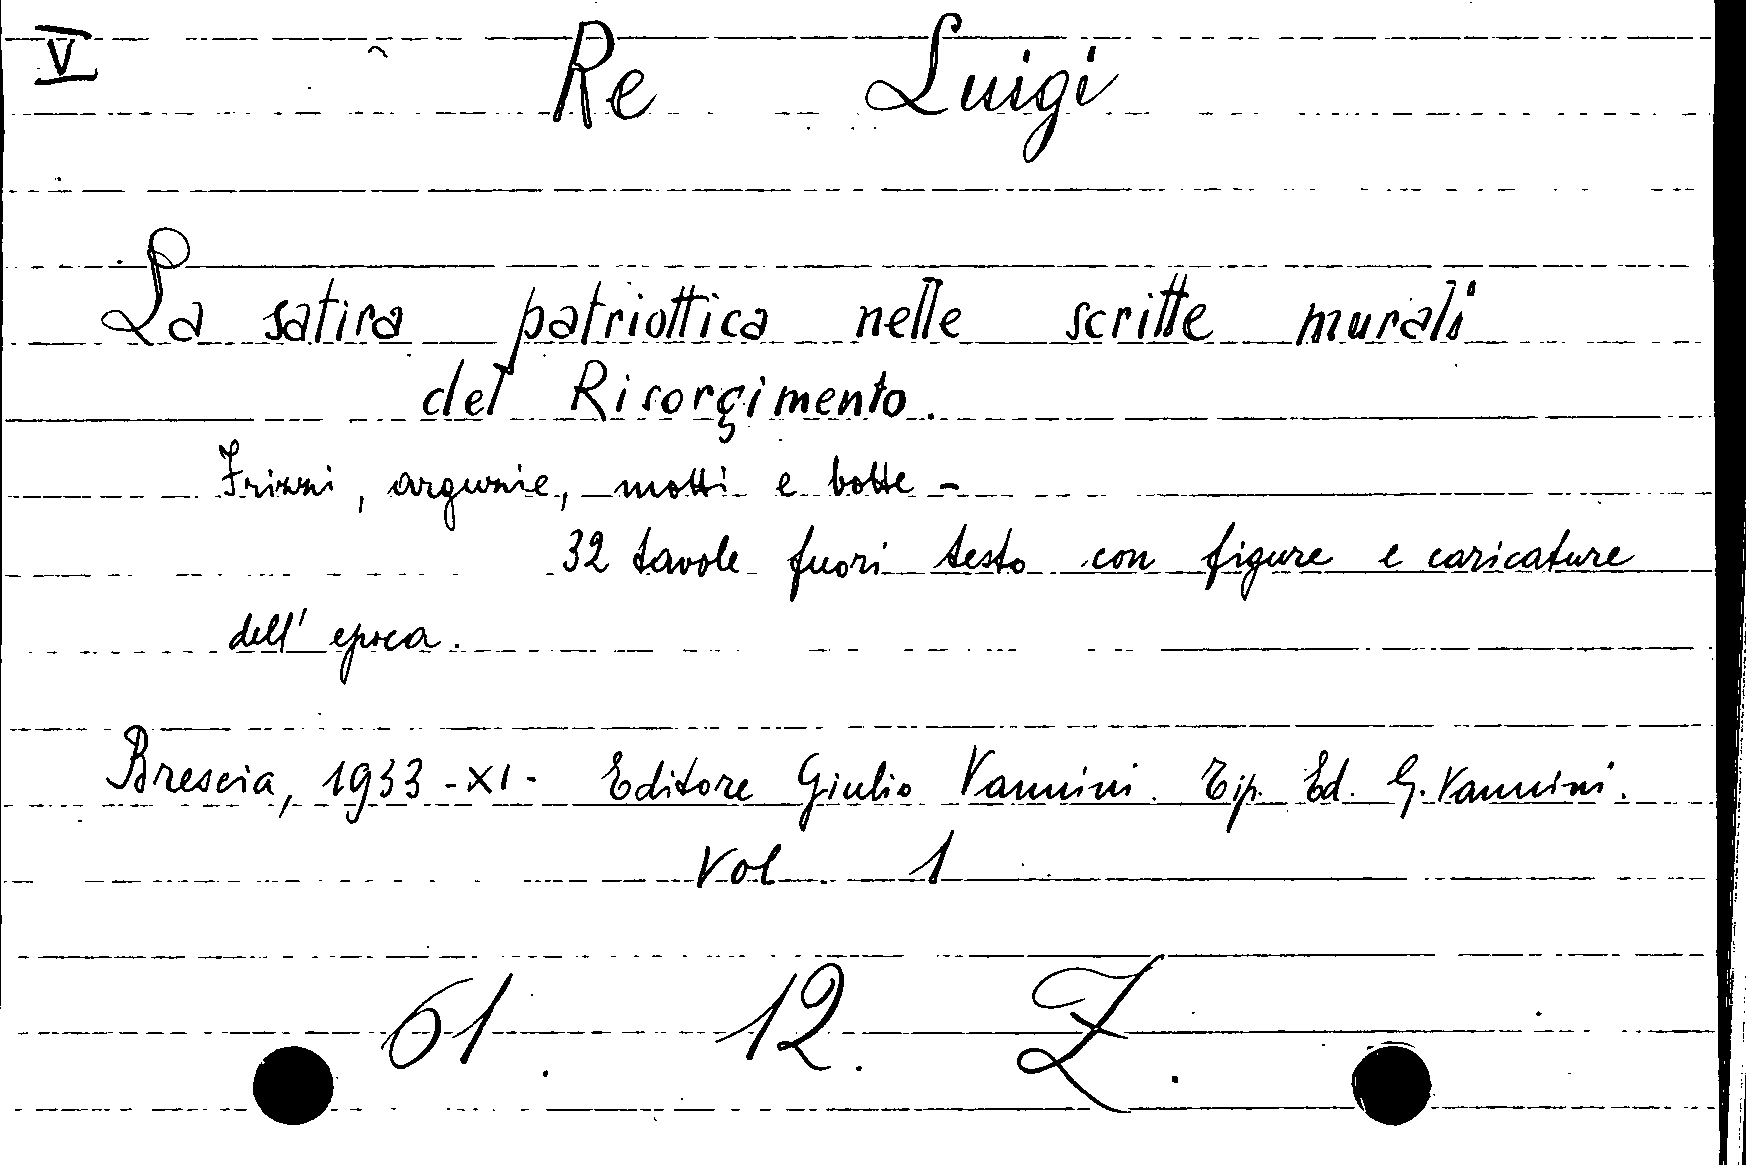 V
Re Luigi
La satira patriottica nelle scritte murali
del Risorgimento.
Frizzi, arguzie, motti e botte -
32 tavole fuori testo con figure e caricature
dell' epoca.
Brescia, 1933 - XI - Editore Giulio Vannini. Tip. Ed. G. Vannini.
Vol. 1
61. 12. Z.